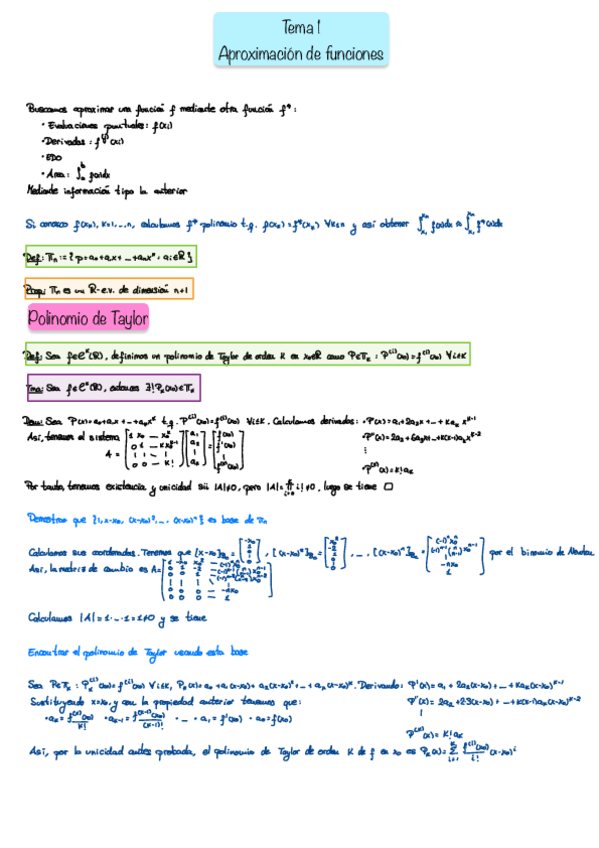 Tema 1
Aproximación de funciones
Buscamos aproximar una función f mediante otra función f*:
· Evaluaciones puntuales: f(xi)
· Derivadas: f^(j)(xi)
· EDO
· Área: ∫_a^b f(x)dx
Mediante información tipo la anterior
Si conozco f(xk), k=1,...,n, calculamos f* polinomio t.q. f(xk)=f*(xk) ∀k≤n y así obtener ∫_{x1}^{xn} f(x)dx ≈ ∫_{x1}^{xn} f*(x)dx
Def: Πn := {p=a0+a1x+...+anx^n : ai∈R}
Prop: Πn es un R-e.v. de dimensión n+1
Polinomio de Taylor
Def: Sea f∈C^k(R), definimos un polinomio de Taylor de orden K en x0∈R como P∈Πk : P^(i)(x0)=f^(i)(x0) ∀i≤K
Tma: Sea f∈C^k(R), entonces ∃! Pk(x)∈Πk
Dem: Sea P(x)=a0+a1x+...+akx^k t.q. P^(i)(x0)=f^(i)(x0) ∀i≤K. Calculamos derivadas: · P'(x)=a1+2a2x+...+Kak x^(K-1)
Así, tenemos el sistema
P''(x)=2a2+6a3x+...+K(K-1)akx^(K-2)
A =
P^(k)(x)=K!ak
Por tanto, tenemos existencia y unicidad sii |A|≠0, pero |A|=∏ i!≠0, luego se tiene □
Demostrar que {1, x-x0, (x-x0)^2, ..., (x-x0)^n} es base de Πn
Calculamos sus coordenadas. Tenemos que por el binomio de Newton
Así, la matriz de cambio es A=
Calculamos |A|=1·...·1=1≠0 y se tiene
Encontrar el polinomio de Taylor usando esta base
Sea P∈Πk : Pk^(i)(x0)=f^(i)(x0) ∀i≤K, Pk(x)=a0+a1(x-x0)+a2(x-x0)^2+...+ak(x-x0)^k. Derivando: P'(x)=a1+2a2(x-x0)+...+Kak(x-x0)^(K-1)
Sustituyendo x=x0, y con la propiedad anterior tenemos que:
P''(x)=2a2+23(x-x0)+...+K(K-1)ak(x-x0)^(K-2)
· ak=f^(k)(x0)/K! · ak-1=f^(k-1)(x0)/(K-1)! · ... · a1=f'(x0) · a0=f(x0)
P^(k)(x)=K!ak
Así, por la unicidad antes probada, el polinomio de Taylor de orden K de f en x0 es Pk(x)=Σ f^(i)(x0)/i! (x-x0)^i